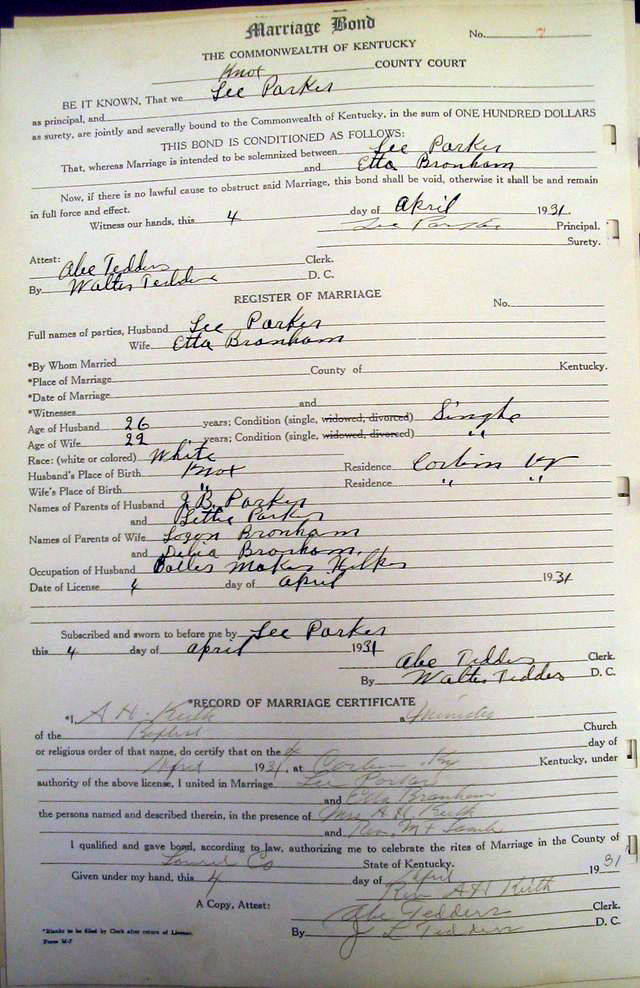 Marriage Bond
No. 7
THE COMMONWEALTH OF KENTUCKY
Knox COUNTY COURT
BE IT KNOWN, That we Lee Parker
as principal, and
as surety, are jointly and severally bound to the Commonwealth of Kentucky, in the sum of ONE HUNDRED DOLLARS
THIS BOND IS CONDITIONED AS FOLLOWS:
That, whereas Marriage is intended to be solemnized between Lee Parker
and Etta Bronham
Now, if there is no lawful cause to obstruct said Marriage, this bond shall be void, otherwise it shall be and remain
in full force and effect.
Witness our hands, this 4 day of April 1931
Lee Parker Principal.
Surety.
Attest: Abe Tedders Clerk.
By Walter Tedders D. C.
REGISTER OF MARRIAGE
No.
Full names of parties, Husband Lee Parker
Wife Etta Bronham
*By Whom Married
*Place of Marriage County of Kentucky.
*Date of Marriage
*Witnesses and
Age of Husband 26 years; Condition (single, widowed, divorced) Single
Age of Wife 22 years; Condition (single, widowed, divorced) "
Race: (white or colored) White
Husband's Place of Birth Knox Residence Corbin Ky
Wife's Place of Birth " Residence " "
Names of Parents of Husband J. B. Parker
and Lettie Parker
Names of Parents of Wife Logen Bronham
and Delia Bronham
Occupation of Husband Boiler Maker
Date of License 4 day of April 1931
Subscribed and sworn to before me by Lee Parker
this 4 day of April 1931
Abe Tedders Clerk.
By Walter Tedders D. C.
*RECORD OF MARRIAGE CERTIFICATE
*I, A H. Keith a Minister
of the Baptist Church
or religious order of that name, do certify that on the 4 day of
April 1931, at Corbin Ky Kentucky, under
authority of the above license, I united in Marriage Lee Parker
and Etta Branham
the persons named and described therein, in the presence of Mrs A H Keith
and Rev. M
I qualified and gave bond, according to law, authorizing me to celebrate the rites of Marriage in the County of
Laurel Co State of Kentucky.
Given under my hand, this 4 day of April 1931
Rev A H Keith
A Copy, Attest: Abe Tedders Clerk.
By J L Tedders D. C.
*Blanks to be filed by Clerk after return of License.
Form M-7